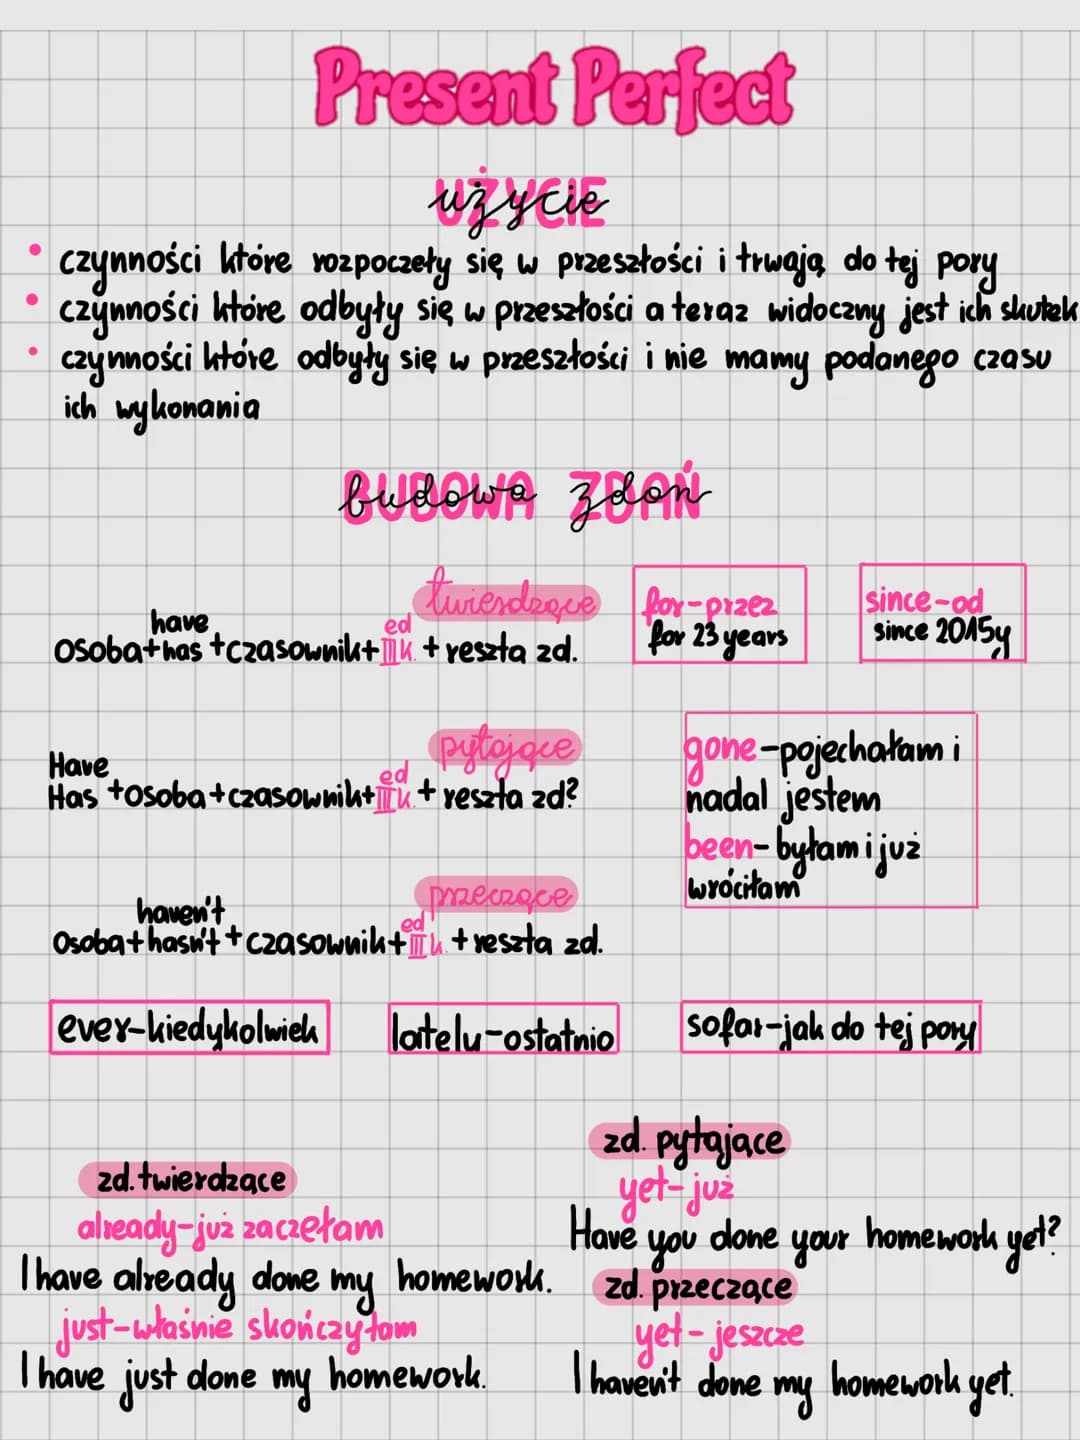 Present Perfect
UŻYCIE
użycie
• czynności które rozpoczeły się w przeszłości i trwają do tej pory
• czynności które odbyły się w przeszłości a teraz widoczny jest ich skutek
• czynności które odbyły się w przeszłości i nie mamy podanego czasu
ich wykonania
BUDOWA ZDAŃ
budowa zdań
twierdzące
have
ed
osoba+has +czasownik+III k. + reszta zd.
for-przez
for 23 years
since-od
since 2015y
pytające
Have
ed
Has +osoba+czasownik+III k. + reszta zd?
gone-pojechałam i
nadal jestem
been-byłam i już
wróciłam
przeczące
haven't
ed
osoba+hasn't +czasownik+III k. +reszta zd.
ever-kiedykolwiek
latelu-ostatnio
sofar-jak do tej pory
zd. twierdzące
already-już zaczełam
I have already done my homework.
just-właśnie skończyłam
I have just done my homework.
zd. pytające
yet-już
Have you done your homework yet?
zd. przeczące
yet-jeszcze
I haven't done my homework yet.